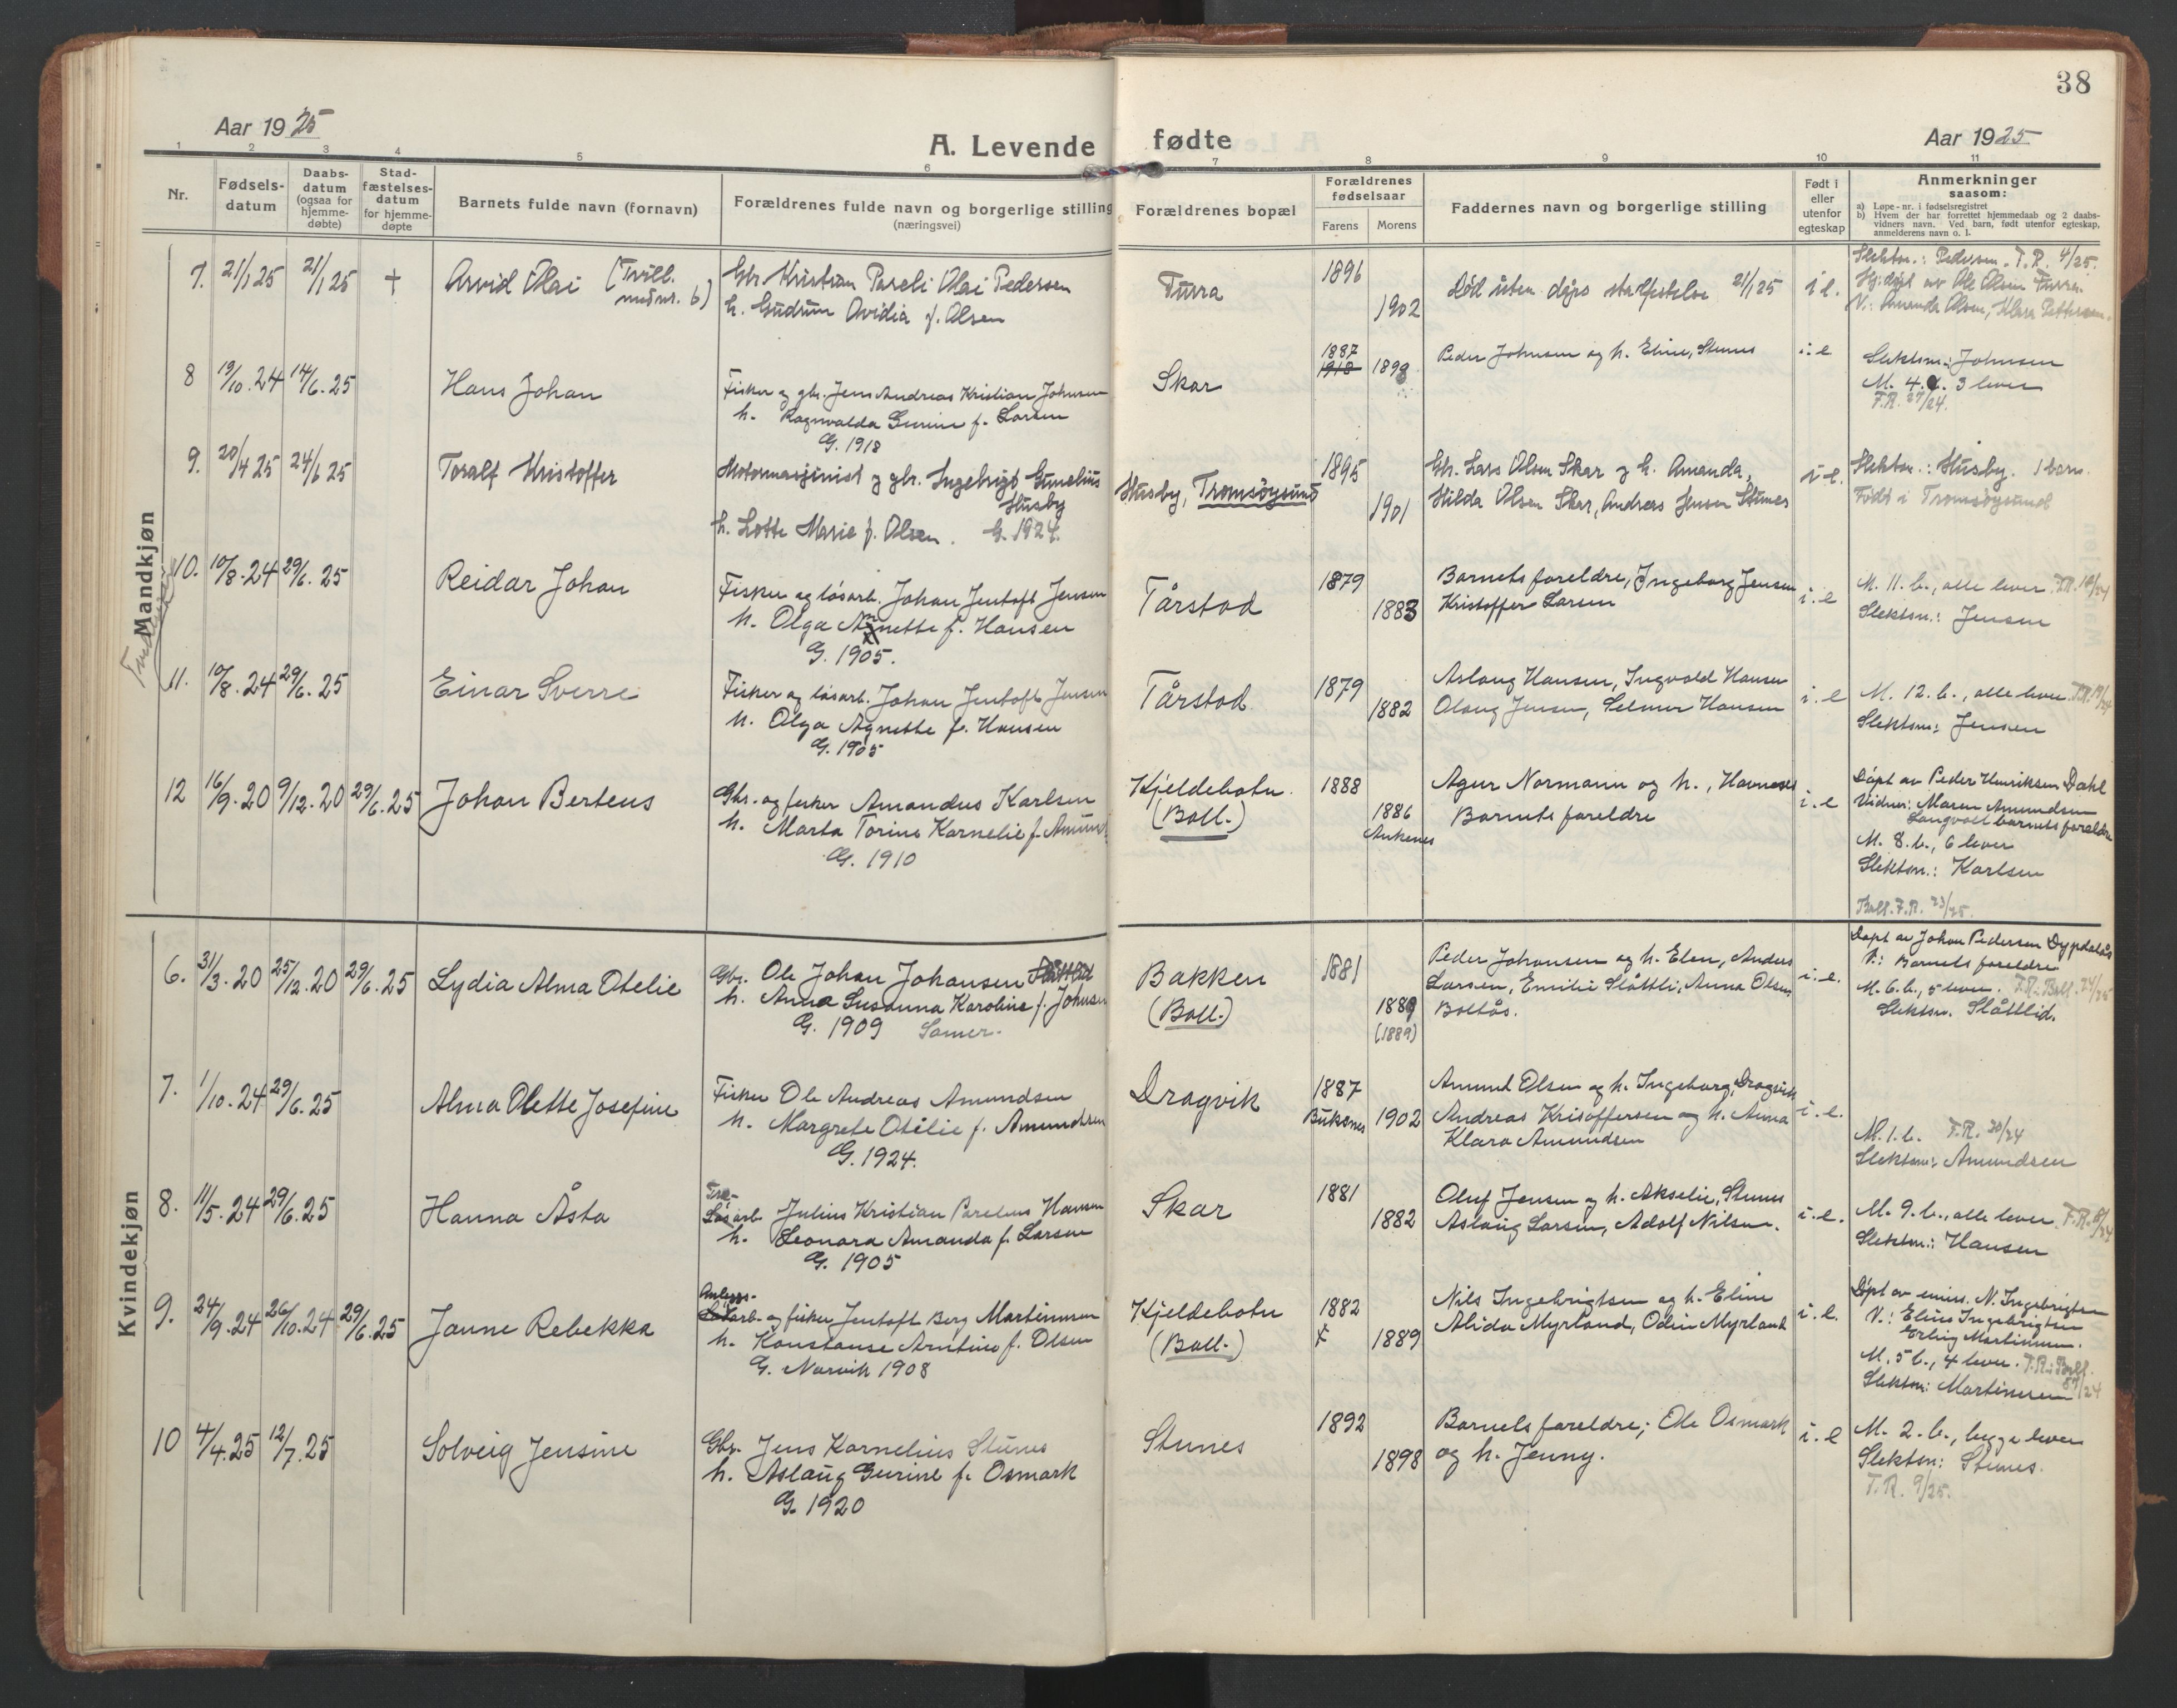 38
Aar 1925
A. Levende fødte
Aar 1925
1 2 3 4 5 6 7 8 9 10 11
Nr.
Fødsels-
datum
Daabs-
datum
(ogsaa for
hjemme-
døbte)
Stad-
fæstelses-
datum
for hjemme-
døpte
Barnets fulde navn (fornavn)
Forældrenes fulde navn og borgerlige stilling
(næringsvei)
Forældrenes bopæl
Forældrenes
fødselsaar
Farens Morens
Faddernes navn og borgerlige stilling
Født i
eller
utenfor
egteskap
Anmerkninger
saasom:
a) Løpe-nr. i fødselsregistret
b) Hvem der har forrettet hjemmedaab og 2 daabs-
vidners navn. Ved barn, født utenfor egteskap,
anmelderens navn o. l.
Mandkjøn
7. 21/1 25 21/1 25 + Arvid Olai (Tvill.
med nr. 6)
Gbr Kristian Pareli Olai Pedersen
h. Gudrun Ovidia f. Olsen
Turra
1896
1902
Død uten dåps stadfestelse 21/1 25
i e.
Slektsn.: Pedersen. F.R. 4/25.
Hj.døpt av Ole Olsen Turra.
V: Amanda Olsen, Klara Pettersen.
8 19/10.24 14/6.25 Hans Johan
Fisker og gbr. Jens Andreas Kristian Johnsen
h. Ragnvalda Gurine f. Larsen
G. 1918
Skar
1887
1918 1898
Peder Johnsen og h. Eline, Stunes
i.e
Slektsn: Johnsen
M. 4. b. 3 lever
F.R. 27/24.
9. 20/4 25 24/6 25 Toralf Kristoffer
Motormaskinist og gbr. Ingebrigt Gunelius
Husby
h. Lotte Marie f. Olsen. G. 1924.
Husby, Tromsøysund
1895
1901
Gbr. Lars Olsen Skar og h. Amanda,
Hilda Olsen Skar, Andreas Jensen Stunes
i e.
Slektsn.: Husby. 1 barn.
Født i Tromsøysund
10. 10/8.24 29/6.25 Reidar Johan
Fisker og løsarb. Johan Jentoft Jensen
h. Olga Agnette f. Hansen
G. 1905.
Tårstad
1879
1883
Barnets foreldre, Ingeborg Jensen
Kristoffer Larsen
i.e
M. 11. b., alle lever. F.R. 18/24
Slektsn.: Jensen
11. 10/8.24 29/6.25 Einar Sverre
Fisker og løsarb. Johan Jentoft Jensen
h. Olga Agnette f. Hansen
G. 1905
Tårstad
1879
1882
Aslaug Hansen, Ingvald Hansen
Olaug Jensen, Selmer Hansen
i.e
M. 12. b., alle lever. F.R. 19/24
Slektsn: Jensen
12 16/9.20 9/12.20 29/6.25 Johan Berteus
Gbr. og fisker Amandus Karlsen
h. Marta Torine Kornelie f. Amund
G. 1910
Kjeldebotn.
(Ball.)
1888
1886
Ankenes
Agur Normann og h., Havnnes
Barnets foreldre
i.e
Døpt av Peder Henriksen Dahl
Vidner: Maren Amundsen
Langvall barnets foreldre
M. 8. b., 6 lever
Slektsn.: Karlsen
Ball. F.R. 23/25.
Kvindekjøn
6. 31/3.20 25/12.20 29/6.25 Lydia Alma Otelie
Gbr. Ole Johan Johansen Slåttlid
h. Anna Susanna Karoline f. Johnsen
G. 1909 Samer.
Bakken
(Ball.)
1881
1889
(1889)
Peder Johansen og h. Elen, Anders
Larsen, Emilie Slåttli, Anna Olsen
Boltås.
i.e.
Døpt av Johan Pedersen Dypdalås
V.: Barnets foreldre
M. 6. b., 5 lever. F.R.: Ball. 24/25
Slektsn. Slåttlid.
7. 1/10.24 29/6.25 Alma Olette Josefine
Fisker Ole Andreas Amundsen
h. Margrete Otelie f. Amundsen
G. 1924.
Dragvik
1887
Buksnes 1902
Amund Olsen og h. Ingeborg, Dragvik
Andreas Krisoffersen og h. Anna
Klara Amundsen
i.e.
M. 1. b. F.R. 20/24
Slektsn: Amundsen
8. 11/5.24 29/6.25 Hanna Åsta
Løsarb. Julius Kristian Parelius Hansen
h. Leonora Amanda f. Larsen
G. 1905
Skar
1881
1882
Oluf Jensen og h. Akselie, Stunes
Aslaug Larsen, Adolf Nilsen.
i.e.
M. 9. b., alle lever. F.R.
Slektsn.: Hansen
9. 24/9.24 26/10.24 29/6.25 Janne Rebekka
Anleggs-
arb- og fisker Jentoft Berg Martinusen
h. Konstanse Arntine f. Olsen
G. Narvik 1908
Kjeldebotn
(Ball.)
1882
1889
Nils Ingebrigtsen og h. Eline
Alida Myrland, Odin Myrland
i.e.
Døpt av emis. N. Ingebrigtsen
V.: Eline Ingebrigtsen
Erling Martinusen.
M. 5 b., 4 lever. F.R.: Ball.
87/24
Slektsn: Martinusen
10 4/4.25 12/7.25 Solveig Jensine
Gbr. Jens Kornelius Stunes
h. Aslaug Gurine f. Osmark
G. 1920
Stunes
1892
1898
Barnets foreldre; Ole Osmark
og h. Jenny.
i.e
M. 2. b., begge lever
Slektsn: Stunes.
F.R. 9/25.